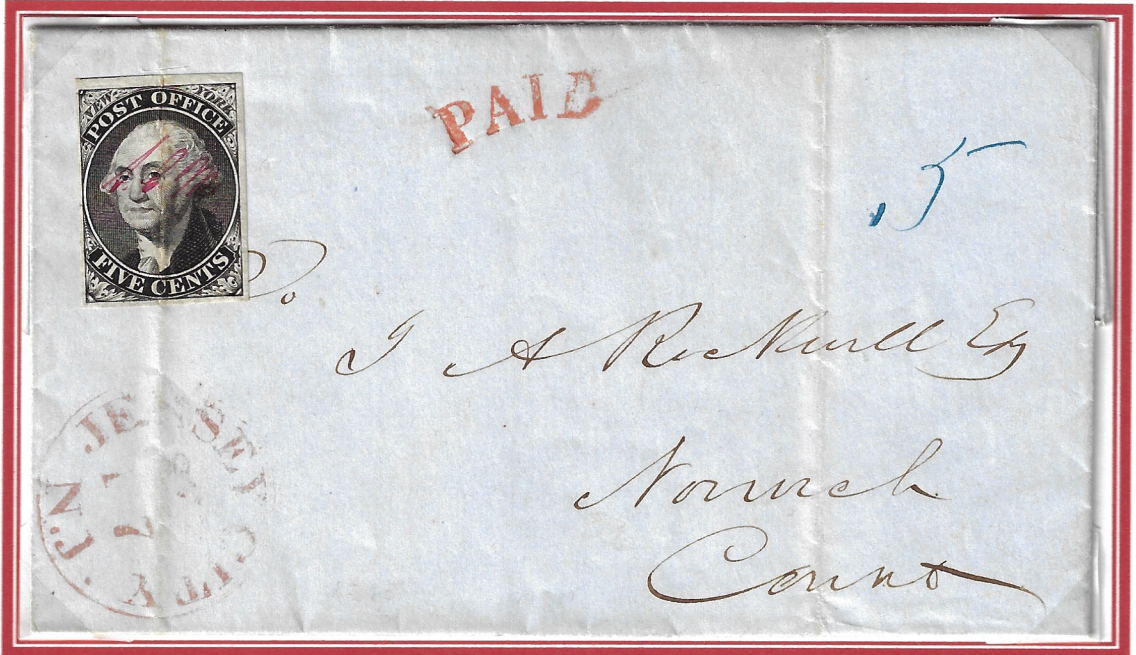 NEW YORK
POST OFFICE
FIVE CENTS
PAID
5
To
J A Rockwell Esq
Norwich
Connt
JERSEY CITY N.J.
7